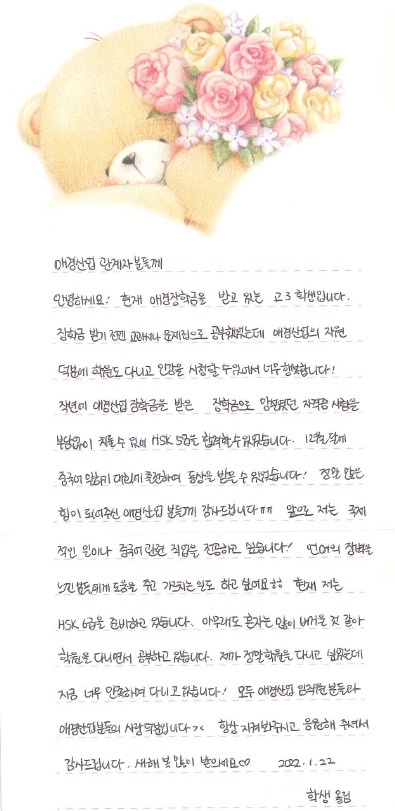 애경산업 관계자분들께
안녕하세요! 현재 애경장학금을 받고 있는 고3 학생입니다.
장학금 받기 전엔 교과서나 문제집으로 공부했었는데 애경산업의 지원
덕분에 학원도 다니고 인강을 시청할 수 있어서 너무 행복합니다!
작년에 애경산업 장학금을 받은 장학금으로 망설였던 자격증 시험을
부담없이 치룰 수 있어 HSK 5급을 합격할 수 있었습니다. 12월달에
중국어 말하기 대회에 출전하여 동상을 받을 수 있었습니다! 정말 많은
힘이 되어주신 애경산업 분들께 감사드립니다ㅠㅠ 앞으로 저는 국제
적인 일이나 중국어 관련 직업을 전공하고 싶습니다! 언어의 장벽을
느낀 분들에게 도움을 주고 가르치는 일도 하고 싶어요ㅎㅎ 현재 저는
HSK 6급을 준비하고 있습니다. 아무래도 혼자는 많이 버거울 것 같아
학원을 다니면서 공부하고 있습니다. 제가 정말 학원을 다니고 싶었는데
지금 너무 만족하며 다니고 있습니다! 모두 애경산업 임직원분들과
애경산업분들의 사랑 덕분입니다>< 항상 지켜봐주시고 응원해 주셔서
감사드립니다. 새해 복 많이 받으세요♡ 2022.1.22
학생 올림